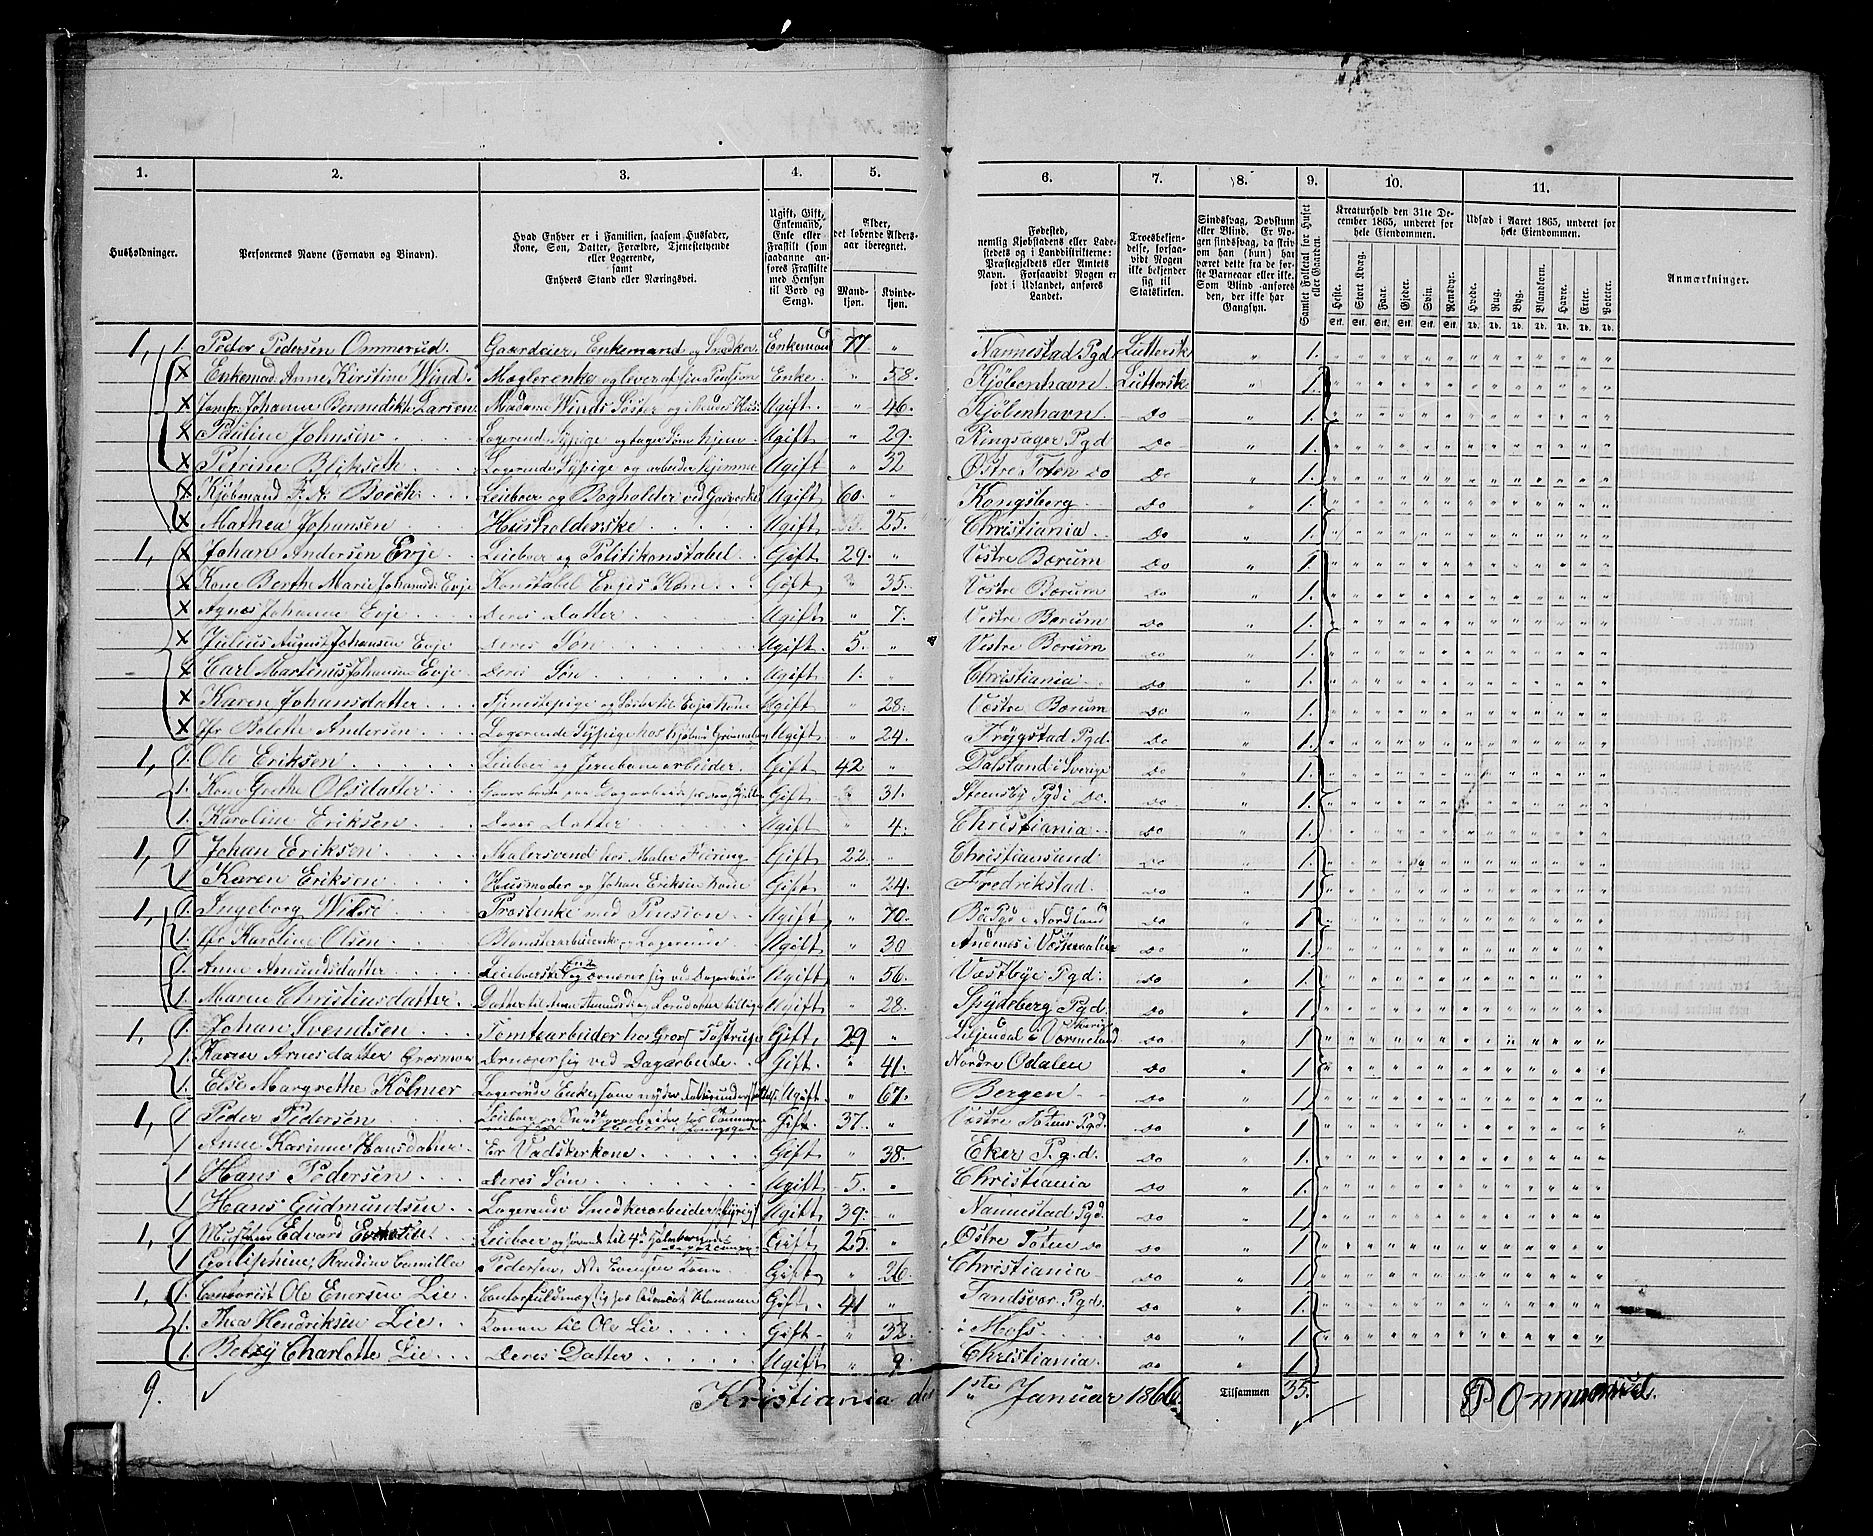 1. 2. 3. 4. 5. 6. 7. 8. 9. 10. 11.
Husholdninger. Personernes Navne (Fornavn og Binavn). Hvad Enhver er i Familien, saasom Husfader, Kone, Søn, Datter, Forældre, Tjenestetyende eller Logerende, samt Enhvers Stand eller Næringsvei. Ugift, Gift, Enkemand, Enke eller Fraskilt (som saadanne anføres Fraskilte med Hensyn til Bord og Seng). Alder, det løbende Alders-aar iberegnet. Mandkjøn. Kvindekjøn. Fødested, nemlig Kjøbstadens eller Ladestedets og i Landdistrikterne: Præstegjeldets eller Amtets Navn. Forsaavidt Nogen er født i Udlandet, anføres Landet. Troesbekjendelse, forsaavidt Nogen ikke bekjender sig til Statskirken. Sindssvag, Døvstum eller Blind. Er Nogen sindssvag, da skrives om han (hun) har været dette fra de første Barneaar eller ikke. Som Blind anføres den, der ikke har Gangsyn. Samlet Folketal for Huset eller Gaarden. Kreaturhold den 31te December 1865, underet for hele Eiendommen. Udsæd i Aaret 1865, underet for hele Eiendommen. Anmærkninger.
Heste. Stort Kvæg. Faar. Gjeder. Svin. Rensdyr. Hvede. Rug. Byg. Blandkorn. Havre. Erter. Poteter.
Stk. Stk. Stk. Stk. Stk. Stk. Td. Td. Td. Td. Td. Td. Td.
1, 1. Peder Pedersen Ommerud. Gaardeier, Enkemand og Snedker Enkemand 77. " Nannestad Pgd Luttersk " 1.
x Enkemad. Anne Kirstine Wind Mæglerenke og lever af sin Pension Enke. " 58. Kjøbenhavn. Luttersk " 1.
x Jomfr. Johanne Bennedikte Larsen Madame Winds Søster og i hendes Huus Ugift. " 46. Kjøbenhavn. Do " 1.
x Pauline Johnsen Logerende Sypige og tager Søm hjem Ugift " 29. Ringsager Pgd Do " 1.
x Petrine Blikseth Logerende Sypige og arbeider hjemme Ugift " 32 Østre Toten Do Do " 1.
x Kjøbmand F. A. Boesch. Leieboer og Bogholder ved Gasværket Ugift 60. " Kongsberg. Do " 1.
x Mathea Johansen Husholderske Ugift " 25. Christiania Do " 1.
1, x Johan Andersen Evje Leieboer og Politikonstabel. Gift 29. " Vestre Bærum Do " 1.
x Kone Berthe Marie Johansdt Evje Konstabel Evjes Kone Gift " 35. Vestre Bærum Do " 1.
x Agnes Johanne Evje Deres Datter Ugift " 7. Vestre Bærum Do " 1.
x Julius August Johansen Evje Deres Søn Ugift 5. " Vestre Bærum Do " 1.
x Carl Martinus Johansen Evje. Deres Søn Ugift 1. " Christiania. Do " 1.
x Karen Johansdatter Tjenestepige og Søster til Evjes Kone Ugift " 28. Vestre Bærum Do " 1.
x Jfr Bolette Andersen Logerende Sypige hos Kjøbm Ugift " 24. Trygstad Pgd. Do " 1.
1, 1. Ole Eriksen Leieboer og Jernbanearbeider. Gift 42 " Dalsland i Sverige Do " 1.
1. Kone Grethe Olsdatter Gift " 31. Steensby Pgd i Do. Do " 1.
1. Karoline Eriksen Deres Datter Ugift " 4. Christiania Do " 1.
1, 1 Johan Eriksen Malersvend hos Maler Fiering Gift 22. " Christiansund Do " 1.
1. Karen Eriksen Husmoder og Johan Eriksen Kone Gift " 24. Fredrikstad. Do " 1.
1, 1. Ingeborg Wittsé Prostenke med Pension Ugift " 70. Bö Pgd i Nordland Do " 1
1. Jfr Karoline Olsen Blomsterarbeiderske og Logerende Ugift " 30 Andenes i Vesteraalen Do " 1.
1. Anne Asmundsdatter Leieboerske Enke og ernærer sig ved Dagarbeide Ugift " 56. Vestbye Pgd. Do " 1.
1. Maren Christiansdatter. Ugift " 28. Spydeberg Pgd. Do " 1.
1, 1. Johan Svendsen Tomtearbeider hos Gross Tostrup Gift. 29 " Værmeland Sverige Do " 1.
1. Karen Arnesdatter Ernærer sig ved Dagarbeide Gift. " 41. Nordre Odalen Do " 1
1. Else Margrethe Kölmer Ugift " 67. Bergen Do " 1.
1, 1 Peder Pedersen Gift 37. " Vestre Totens Pgd. Do " 1.
1 Anne Karinne Hansdatter Er Vadskerkone Gift " 38. Eker P.g.d. Do " 1
1 Hans Pedersen Deres Søn Ugift 5. " Christiania Do " 1.
1 Hans Gudmundsen Logerende Snedkerarbeider Ugift 39. " Nannestad Pgd. Do " 1.
1, 1 Edvard Evensen Leieboer og Gift 25. " Østre Toten Do Do " 1
1. Camilla Pedersen, Gift " 26. Christiania Do " 1
1, 1. Contorist Ole Enersen Lie Contorfuldmægtig hos Advocat Homann Gift. 41 " Pgd. Do " 1.
1. Thea Hendriksen Lie Konen til Ole Lie Gift " 32. i Moss. Do " 1
1. Betzy Charlotte Lie Deres Datter Ugift " 9. Christiania Do " 1
9. Kristiania den 1ste Januar 1866. Tilsammen 35. P Ommerud.